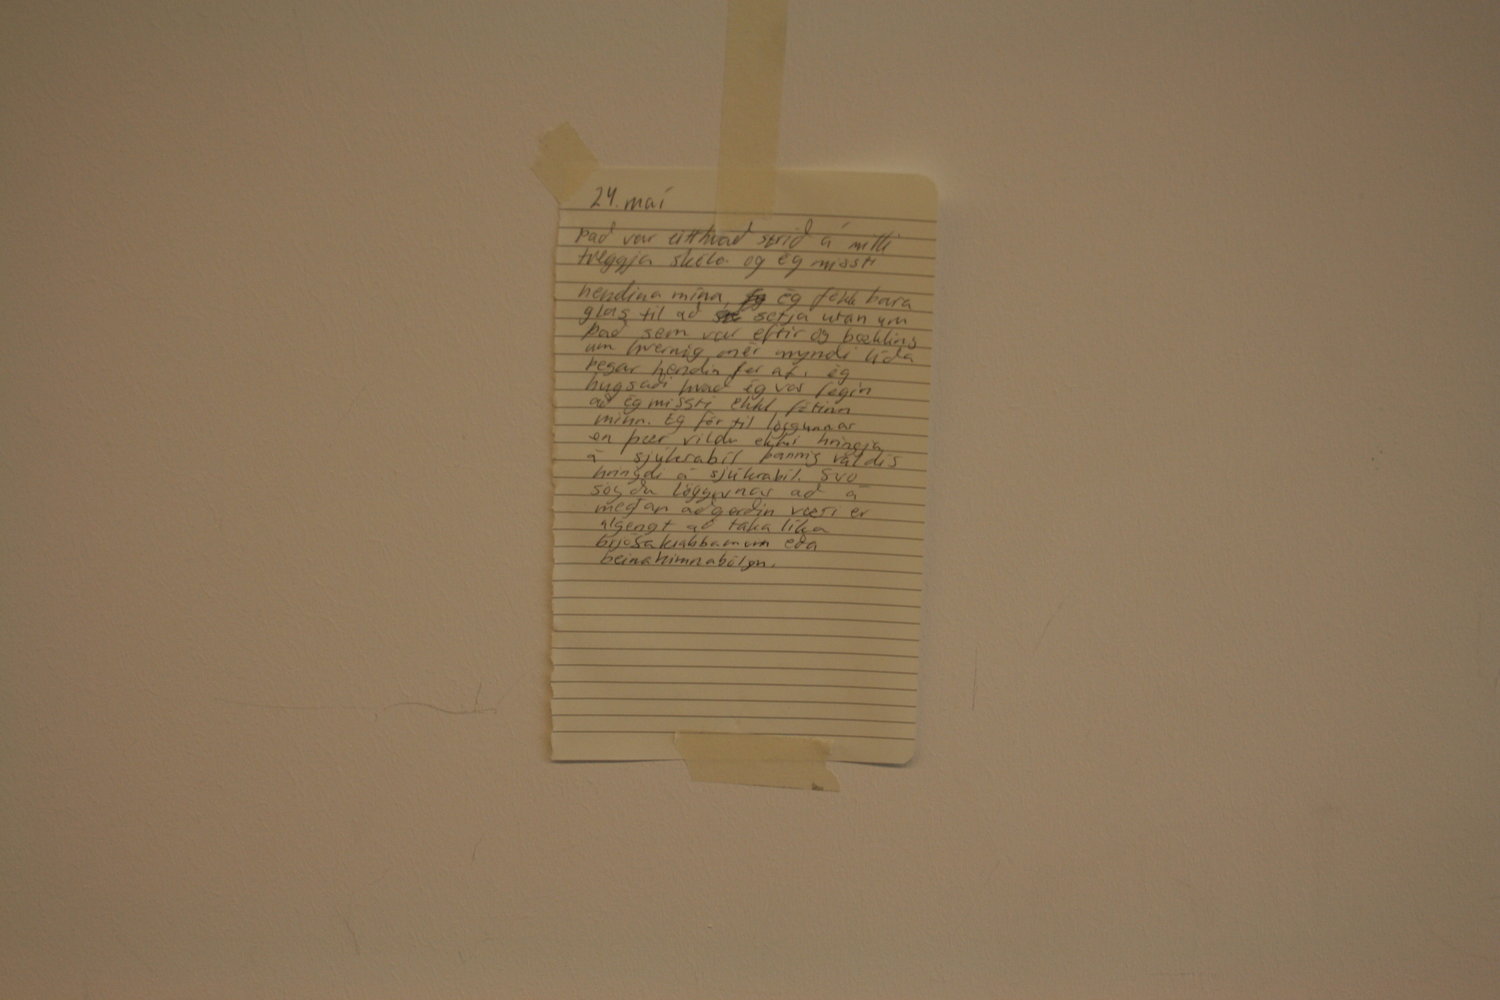 24. maí
það var eitthvað stríð á milli
tveggja skóla og ég missti
hendina mína, ég fékk bara
glas til að setja utan um
það sem var eftir og bækling
um hvernig mér myndi líða
þegar hendin fer af. ég
hugsaði hvað ég var fegin
að ég missti ekki fótinn
minn. Ég fór til löggunnar
en þær vildu ekki hringja
á sjúkrabíl þannig Valdís
hringdi á sjúkrabíl. Svo
sögðu löggurnar að á
meðan aðgerðin væri er
algengt að taka líka
brjóstakrabbamein eða
beinahimnabólgu.